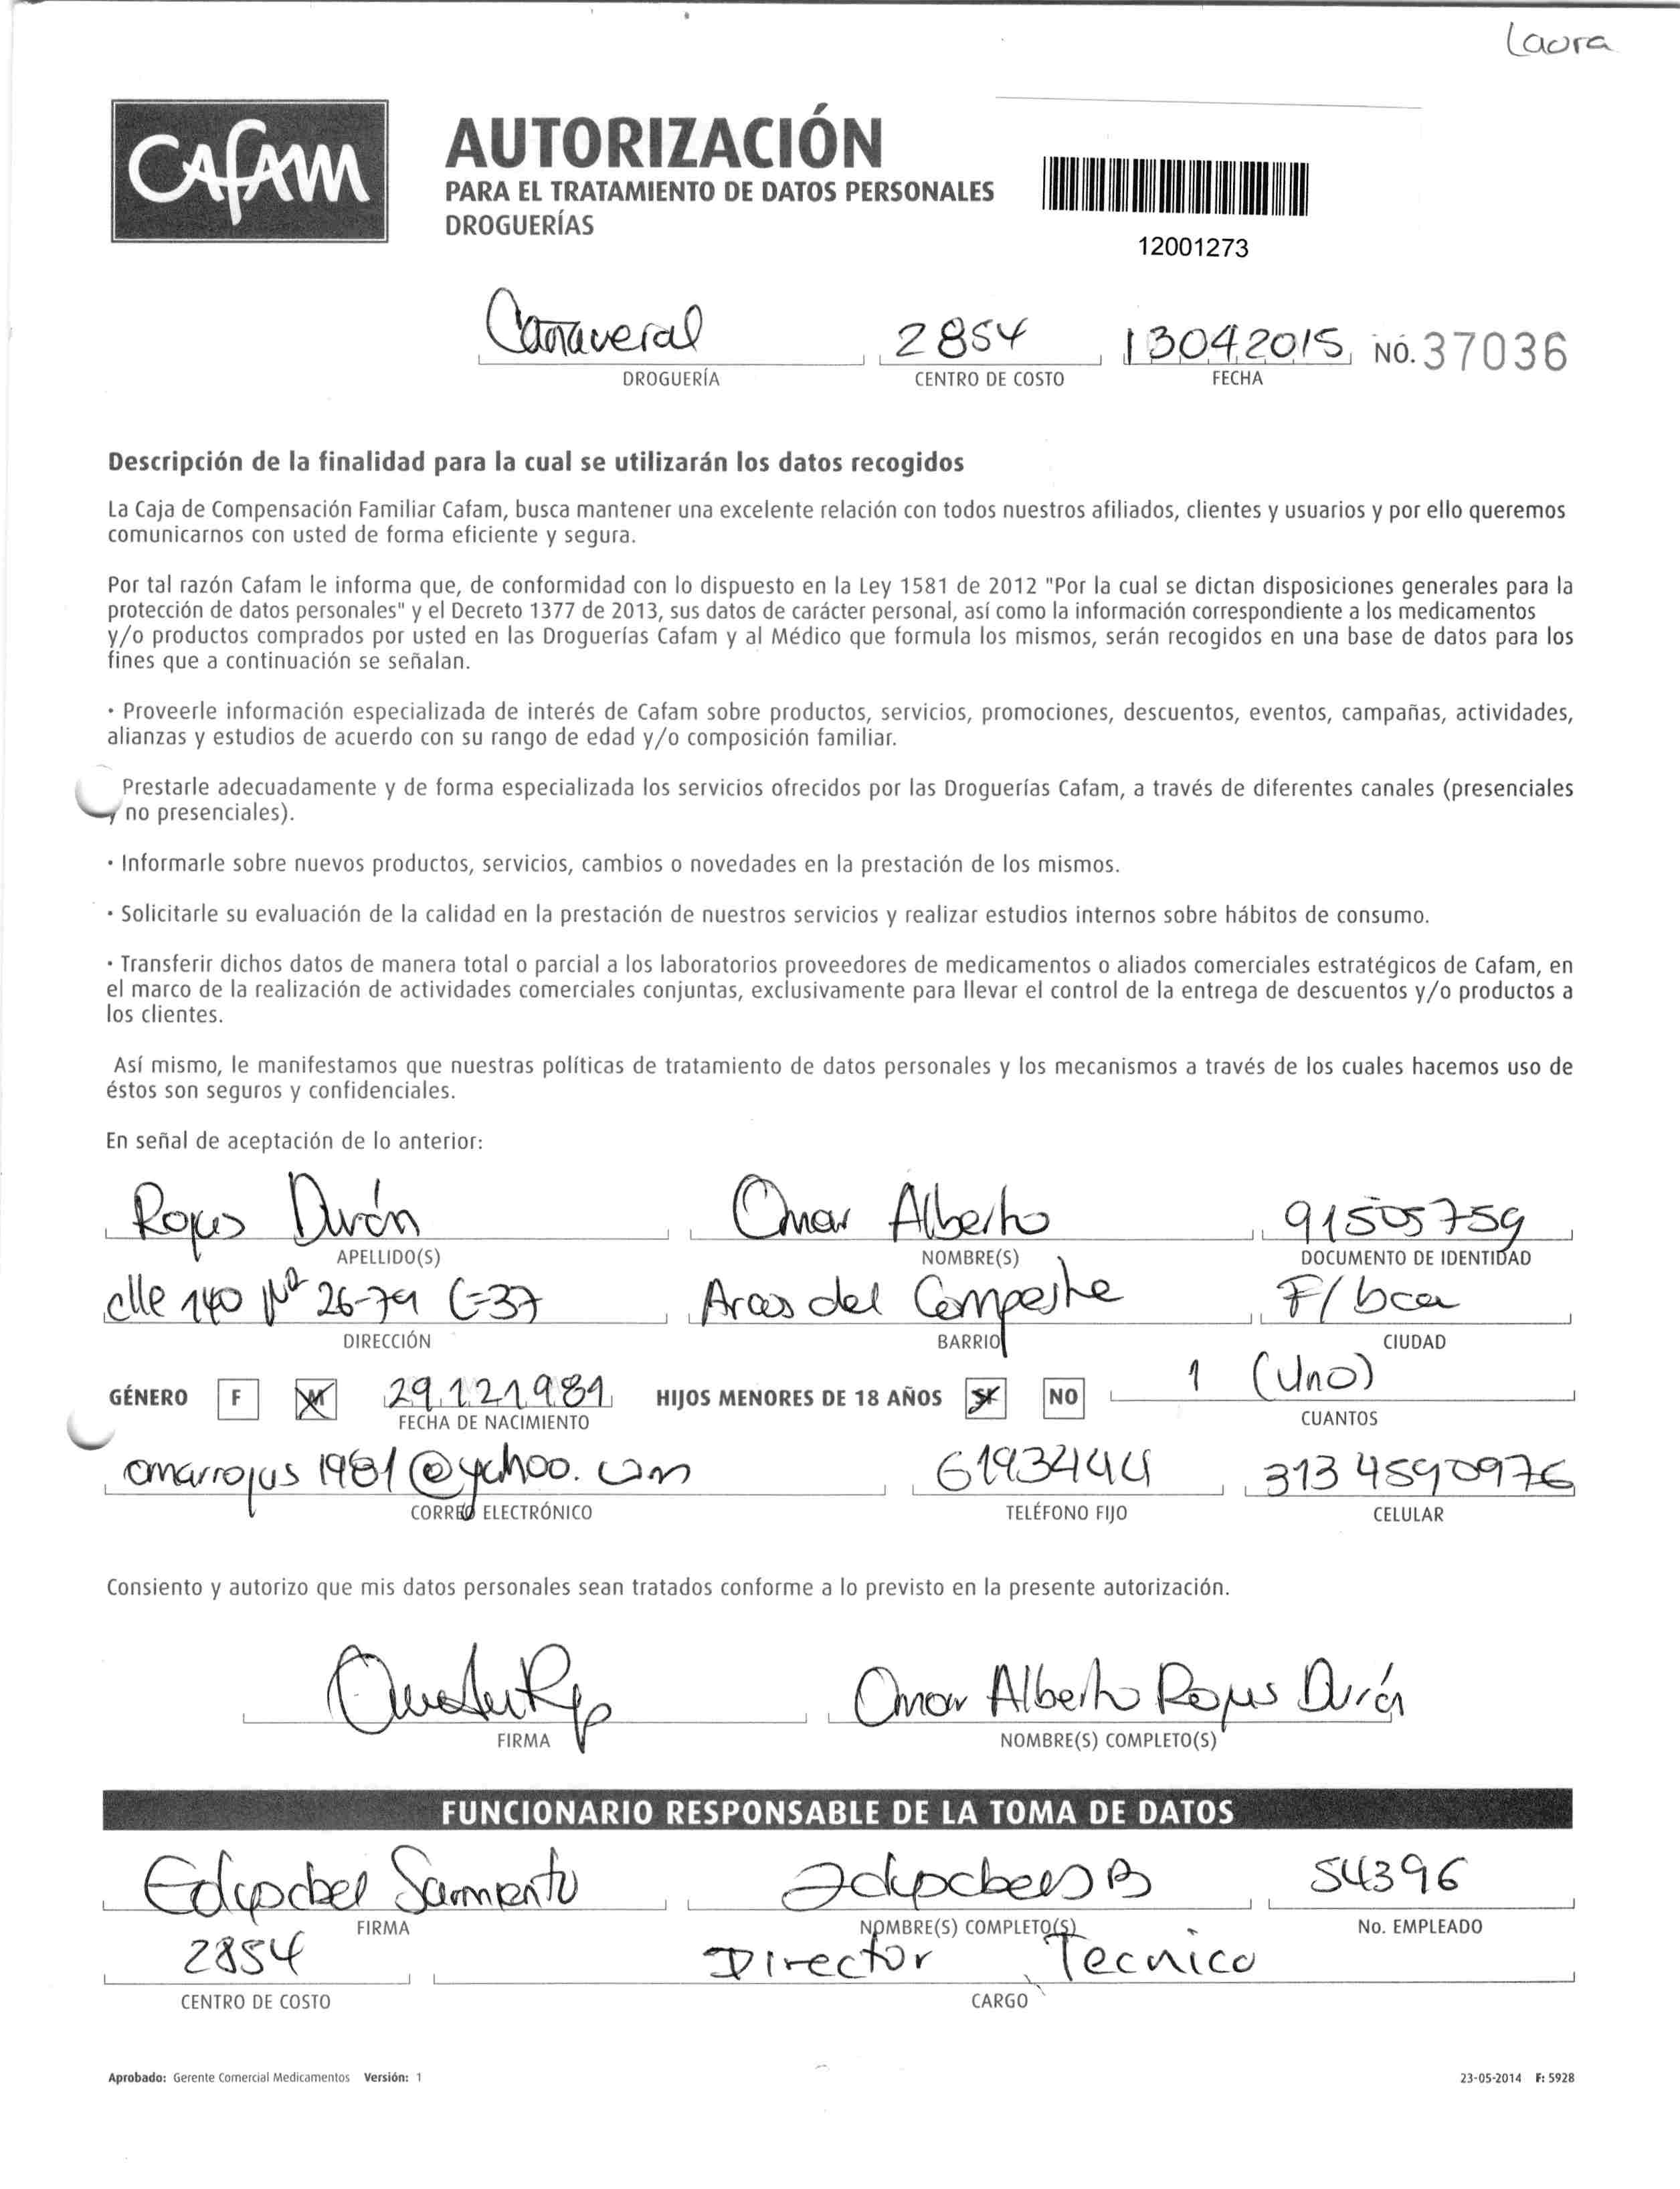 Laura
CAFAM
AUTORIZACIÓN
PARA EL TRATAMIENTO DE DATOS PERSONALES
DROGUERÍAS
12001273
Canaveral 2854 13042015 NO. 37036
DROGUERÍA CENTRO DE COSTO FECHA
Descripción de la finalidad para la cual se utilizarán los datos recogidos
La Caja de Compensación Familiar Cafam, busca mantener una excelente relación con todos nuestros afiliados, clientes y usuarios y por ello queremos
comunicarnos con usted de forma eficiente y segura.
Por tal razón Cafam le informa que, de conformidad con lo dispuesto en la Ley 1581 de 2012 "Por la cual se dictan disposiciones generales para la
protección de datos personales" y el Decreto 1377 de 2013, sus datos de carácter personal, así como la información correspondiente a los medicamentos
y/o productos comprados por usted en las Droguerías Cafam y al Médico que formula los mismos, serán recogidos en una base de datos para los
fines que a continuación se señalan.
• Proveerle información especializada de interés de Cafam sobre productos, servicios, promociones, descuentos, eventos, campañas, actividades,
alianzas y estudios de acuerdo con su rango de edad y/o composición familiar.
Prestarle adecuadamente y de forma especializada los servicios ofrecidos por las Droguerías Cafam, a través de diferentes canales (presenciales
y no presenciales).
• Informarle sobre nuevos productos, servicios, cambios o novedades en la prestación de los mismos.
• Solicitarle su evaluación de la calidad en la prestación de nuestros servicios y realizar estudios internos sobre hábitos de consumo.
• Transferir dichos datos de manera total o parcial a los laboratorios proveedores de medicamentos o aliados comerciales estratégicos de Cafam, en
el marco de la realización de actividades comerciales conjuntas, exclusivamente para llevar el control de la entrega de descuentos y/o productos a
los clientes.
Así mismo, le manifestamos que nuestras políticas de tratamiento de datos personales y los mecanismos a través de los cuales hacemos uso de
éstos son seguros y confidenciales.
En señal de aceptación de lo anterior:
Rojas Durán Omar Alberto 91505759
APELLIDO(S) NOMBRE(S) DOCUMENTO DE IDENTIDAD
clle 140 Nº 26-79 C-37 Arcos del Campestre F/bca
DIRECCIÓN BARRIO CIUDAD
GÉNERO F M 29121981 HIJOS MENORES DE 18 AÑOS SI NO 1 (Uno)
FECHA DE NACIMIENTO CUANTOS
omarrojas1981@yahoo.com 6193444 3134590976
CORREO ELECTRÓNICO TELÉFONO FIJO CELULAR
Consiento y autorizo que mis datos personales sean tratados conforme a lo previsto en la presente autorización.
Omar Alberto Rojas Durán
FIRMA NOMBRE(S) COMPLETO(S)
FUNCIONARIO RESPONSABLE DE LA TOMA DE DATOS
Sarmiento 54396
FIRMA NOMBRE(S) COMPLETO(S) No. EMPLEADO
2854 Director Tecnico
CENTRO DE COSTO CARGO
Aprobado: Gerente Comercial Medicamentos Versión: 1 23-05-2014 F: 5928